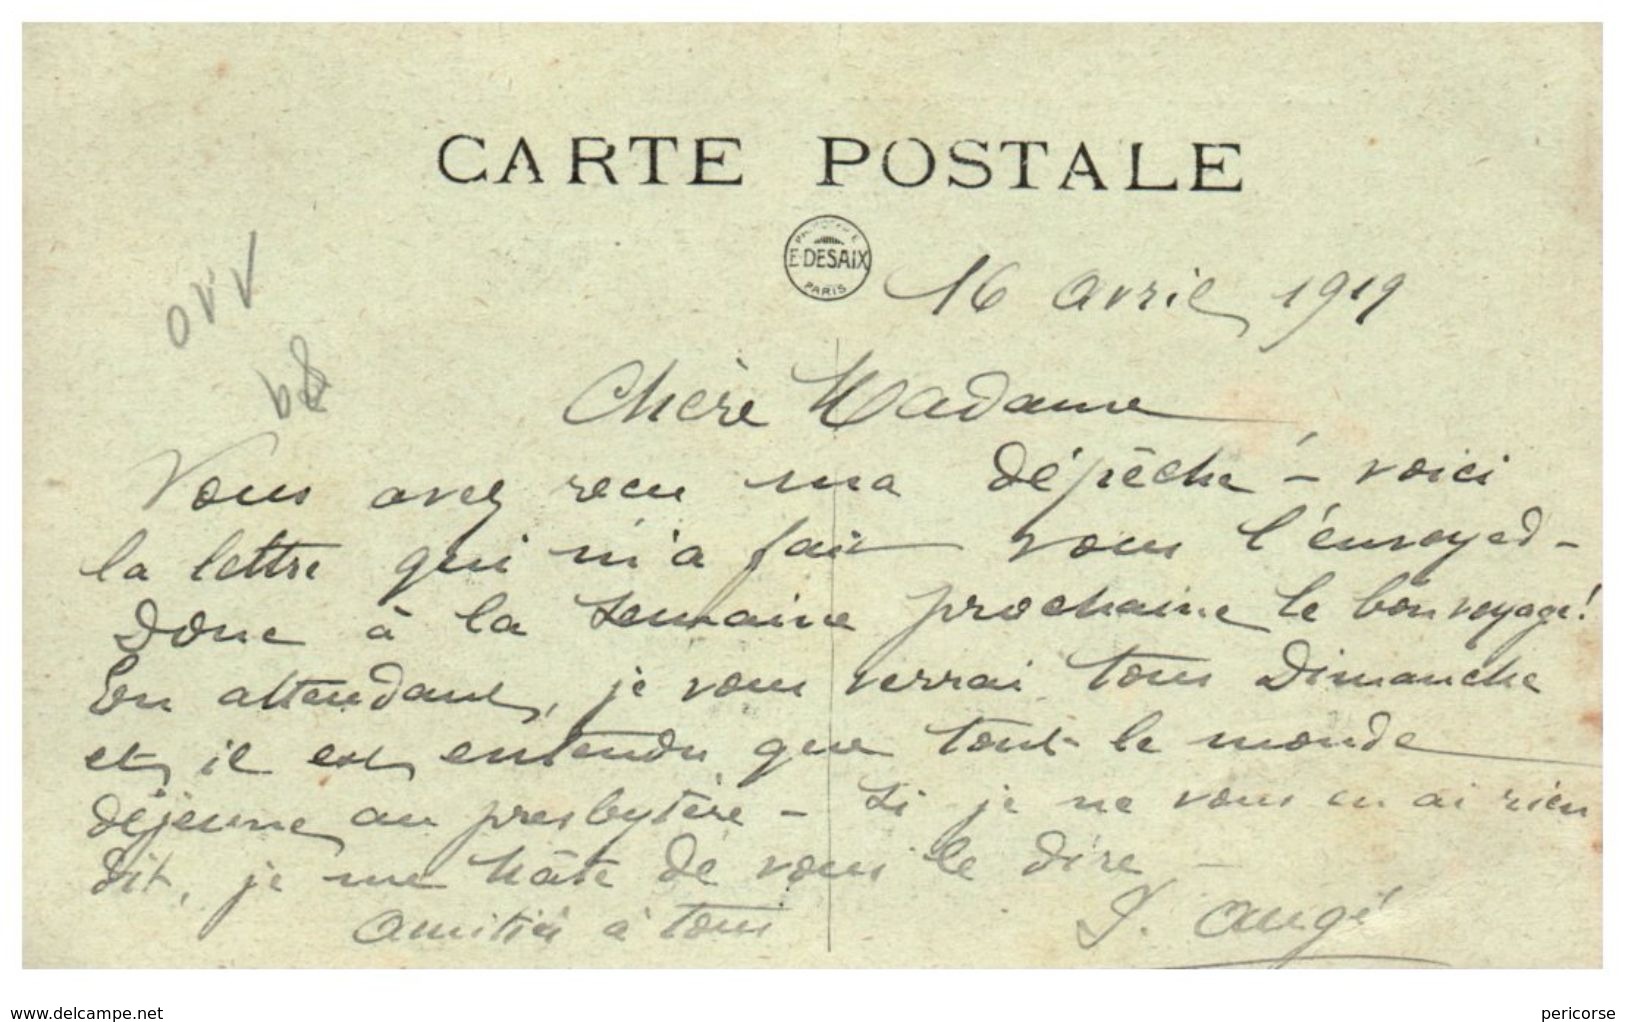 CARTE POSTALE
E. DESAIX
PARIS
16 avril 1919
Chère Madame
Vous avez recu ma dépêche - voici
la lettre qui m'a fait vous l'envoyer -
Donc à la semaine prochaine le bon voyage!
En attendant, je vous verrai tous Dimanche
et il est entendu que tout le monde
déjeune au presbytère - Si je ne vous en ai rien
dit, je me hâte de vous le dire -
Amitiés à tous
J. Augé
www.delcampe.net
pericorse